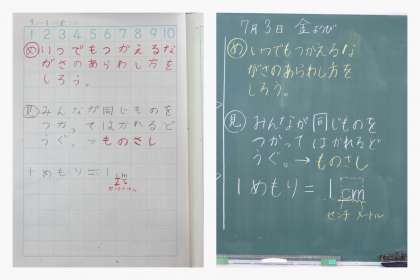 1 2 3 4 5 6 7 8 9 10
め いつでもつかえるな
がさのあらわし方を
しろう。
見 みんなが同じものを
つかって はかれるど
うぐ。→ものさし
1めもり=1cm
センチメートル
7月3日 金ようび
め いつでもつかえるな
がさのあらわし方を
しろう。
見 みんなが同じものを
つかって はかれるど
うぐ。→ものさし
1めもり=1cm
センチメートル